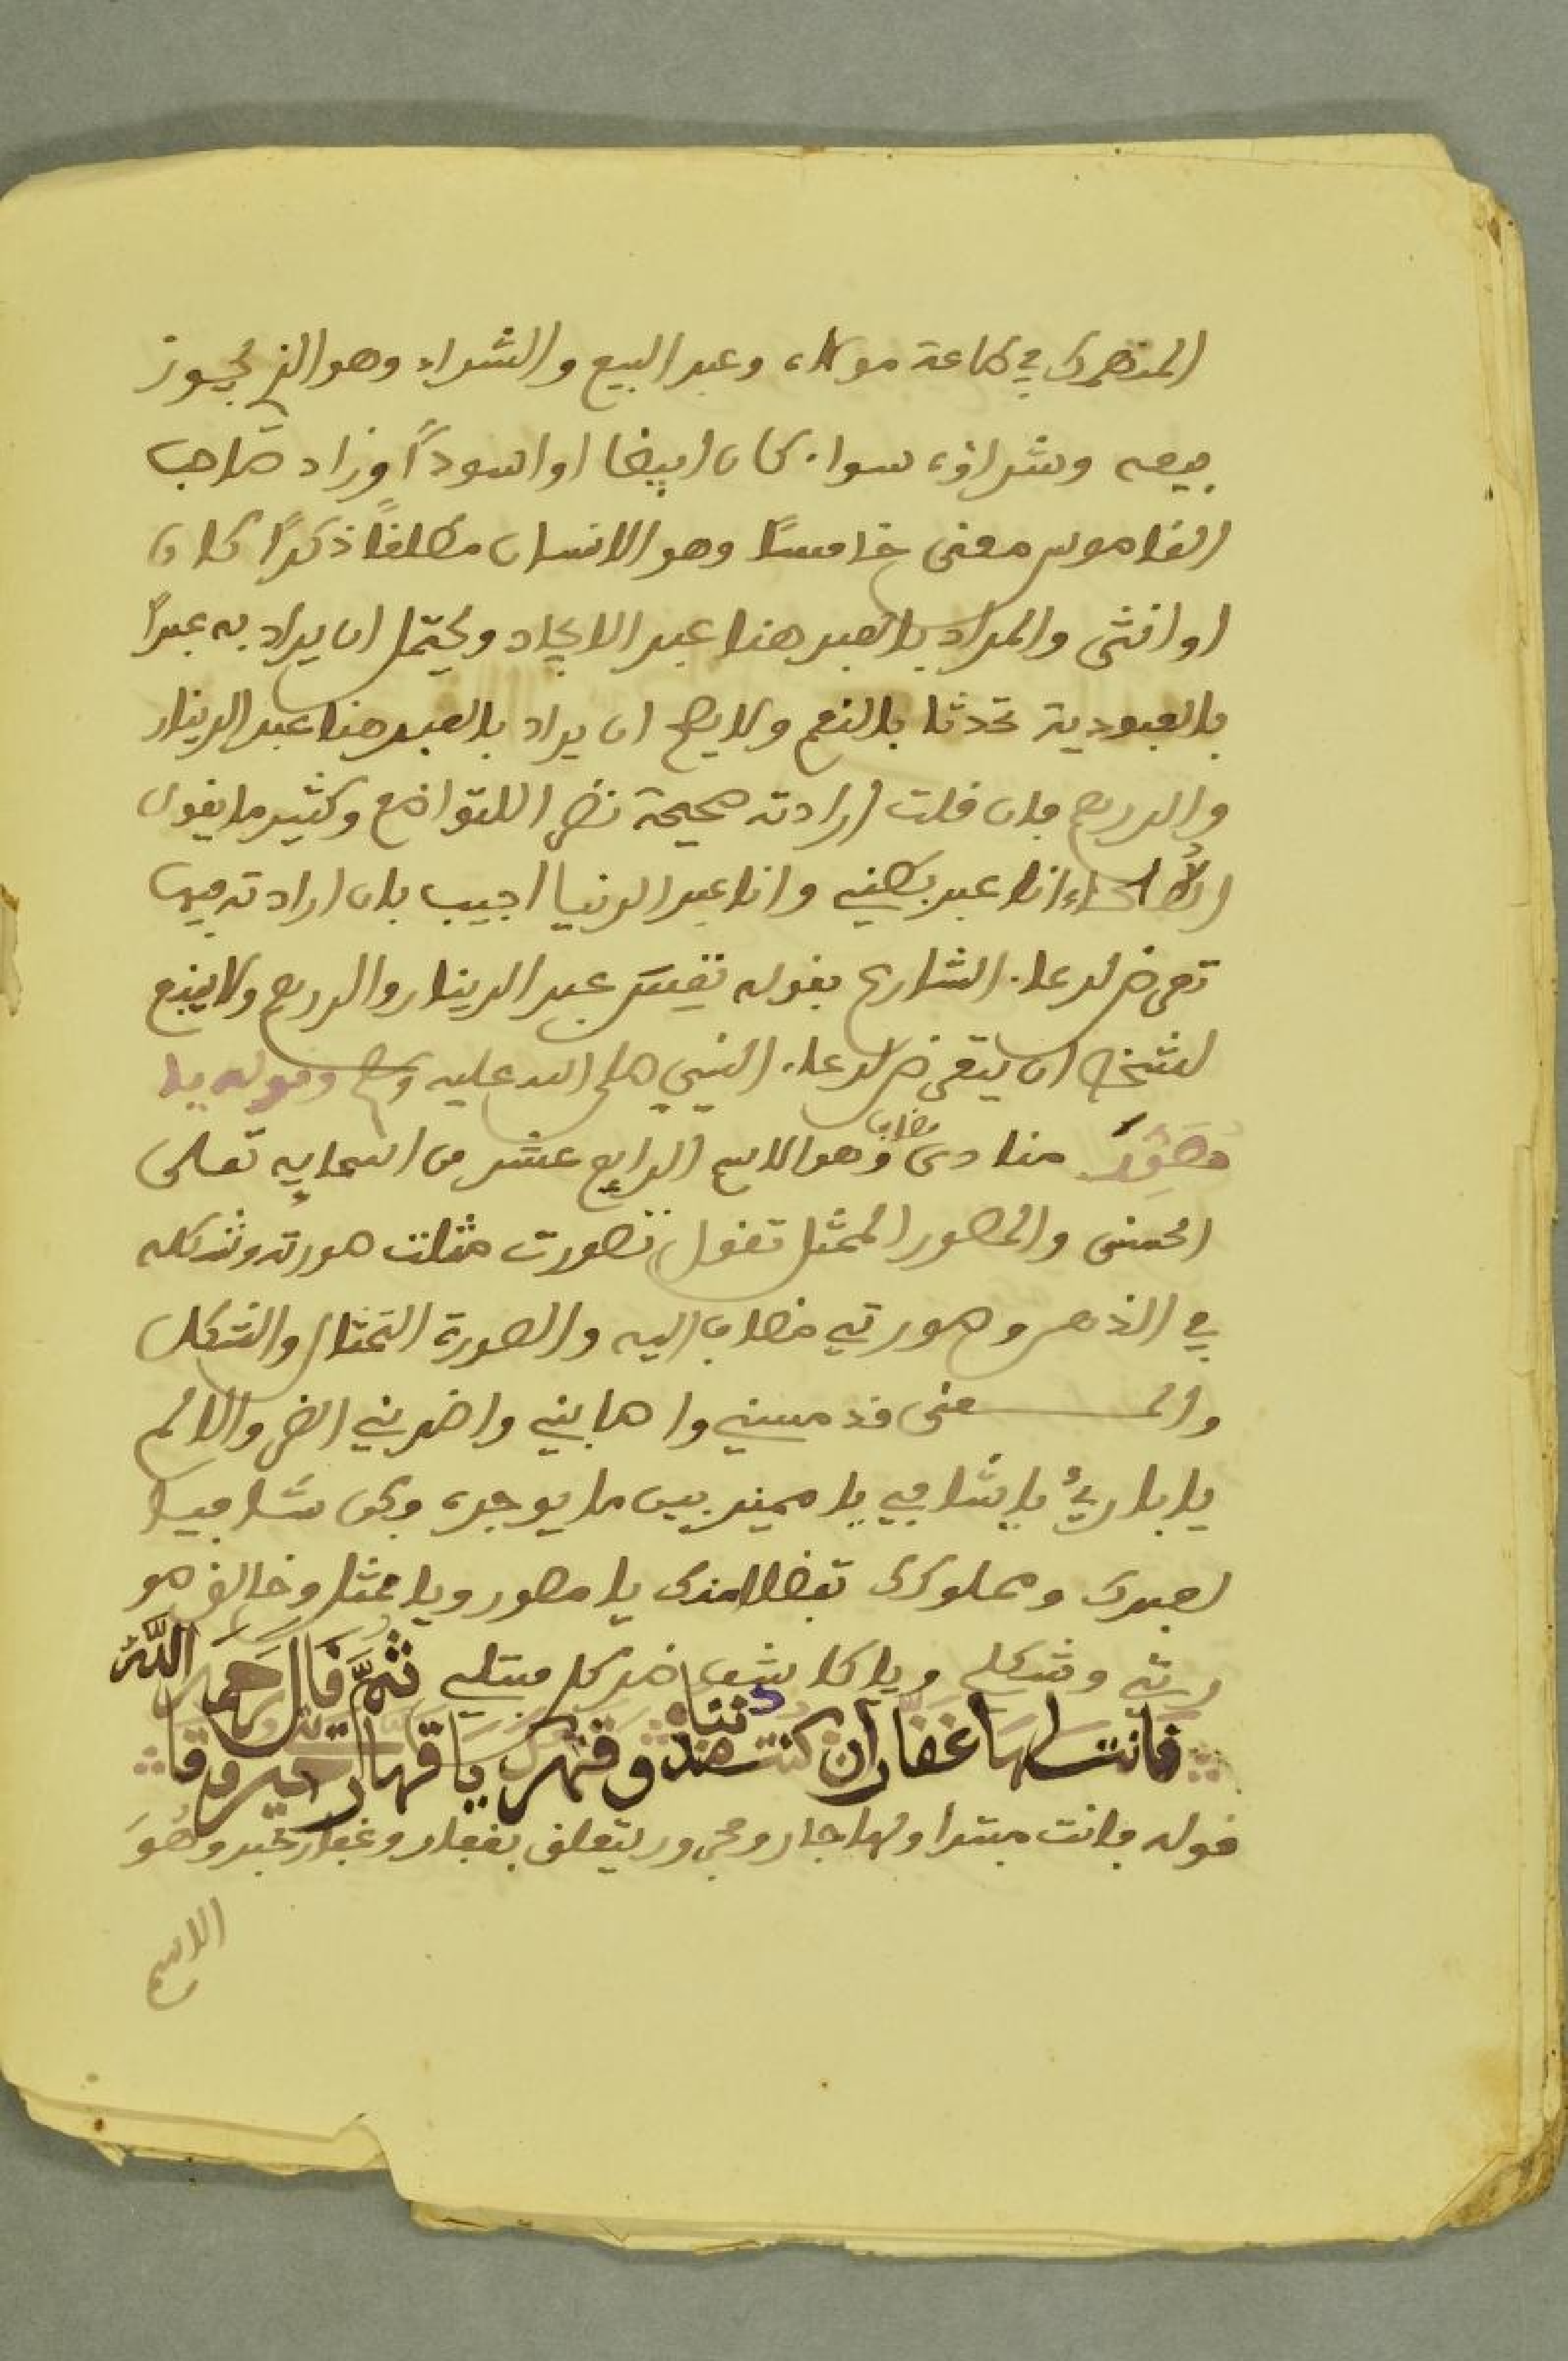 المنهمك في طاعة مولاه وعبد البيع والشراء وهو الذي يجوز
بيعه وشراؤه سواء كان ابيضا او اسوداً وزاد صاحب
القاموس معنى خامسًا وهو الانسان مطلقاً ذكرًا كان
او انثى والمراد بالعبد هنا عبد الايجاد ويحتمل ان يراد به عبداً
بالعبودية تحدثا بالنعم ولا يصح ان يراد بالعبد هنا عبد الدينار
والدرهم فان قلت ارادته صحيحة نظرا للتواضع وكثير ما يقول
انا عبد بطني وانا عبد الدنيا اجيب بان ارادته فيها
تعرض لدعاء الشارع بقوله تعس عبد الدينار والدرهم ولا ينبغ
لشخص ان يتعرض لدعاء النبي صلى الله عليه وسلم وقوله يا
مُصَوِّرَ منادى مضاف وهو الاسم الرابع عشر من اسمايه تعلى
الحسنى والمصور الممثل تقول تصورت مثلت صورته وشكله
في الذهن وصورتي مضاف اليه والصورة التمثال والشكل
والمعنى قد مسني واصابني واضرني الضر والالم
يا بارئُ يا شافي يا مميز بين ما يوجده وكن شافيا
لعبدك ومملوكك تفضلا منك يا مصور ويا ممثل وخالق صو
رتي وشكلي ويا كاشف ضر كل مبتلي ثُمَّ قَالَ رَحِمَهُ اللَّهُ
فانت لها غفار ان كنت مذنبا وقهرك يا قهار
قوله فانت مبتدا ولها جار ومجرور يتعلق بغفار وغفار خبر وهُوَ
الاسم